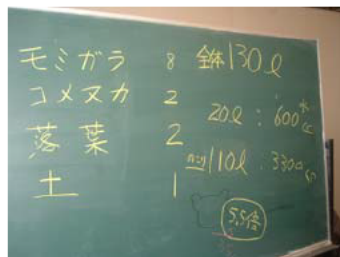 モミガラ 8 全体130ℓ
コメヌカ 2
20ℓ : 600cc
落葉 2
110ℓ : 3300cc
土 1
5.5倍